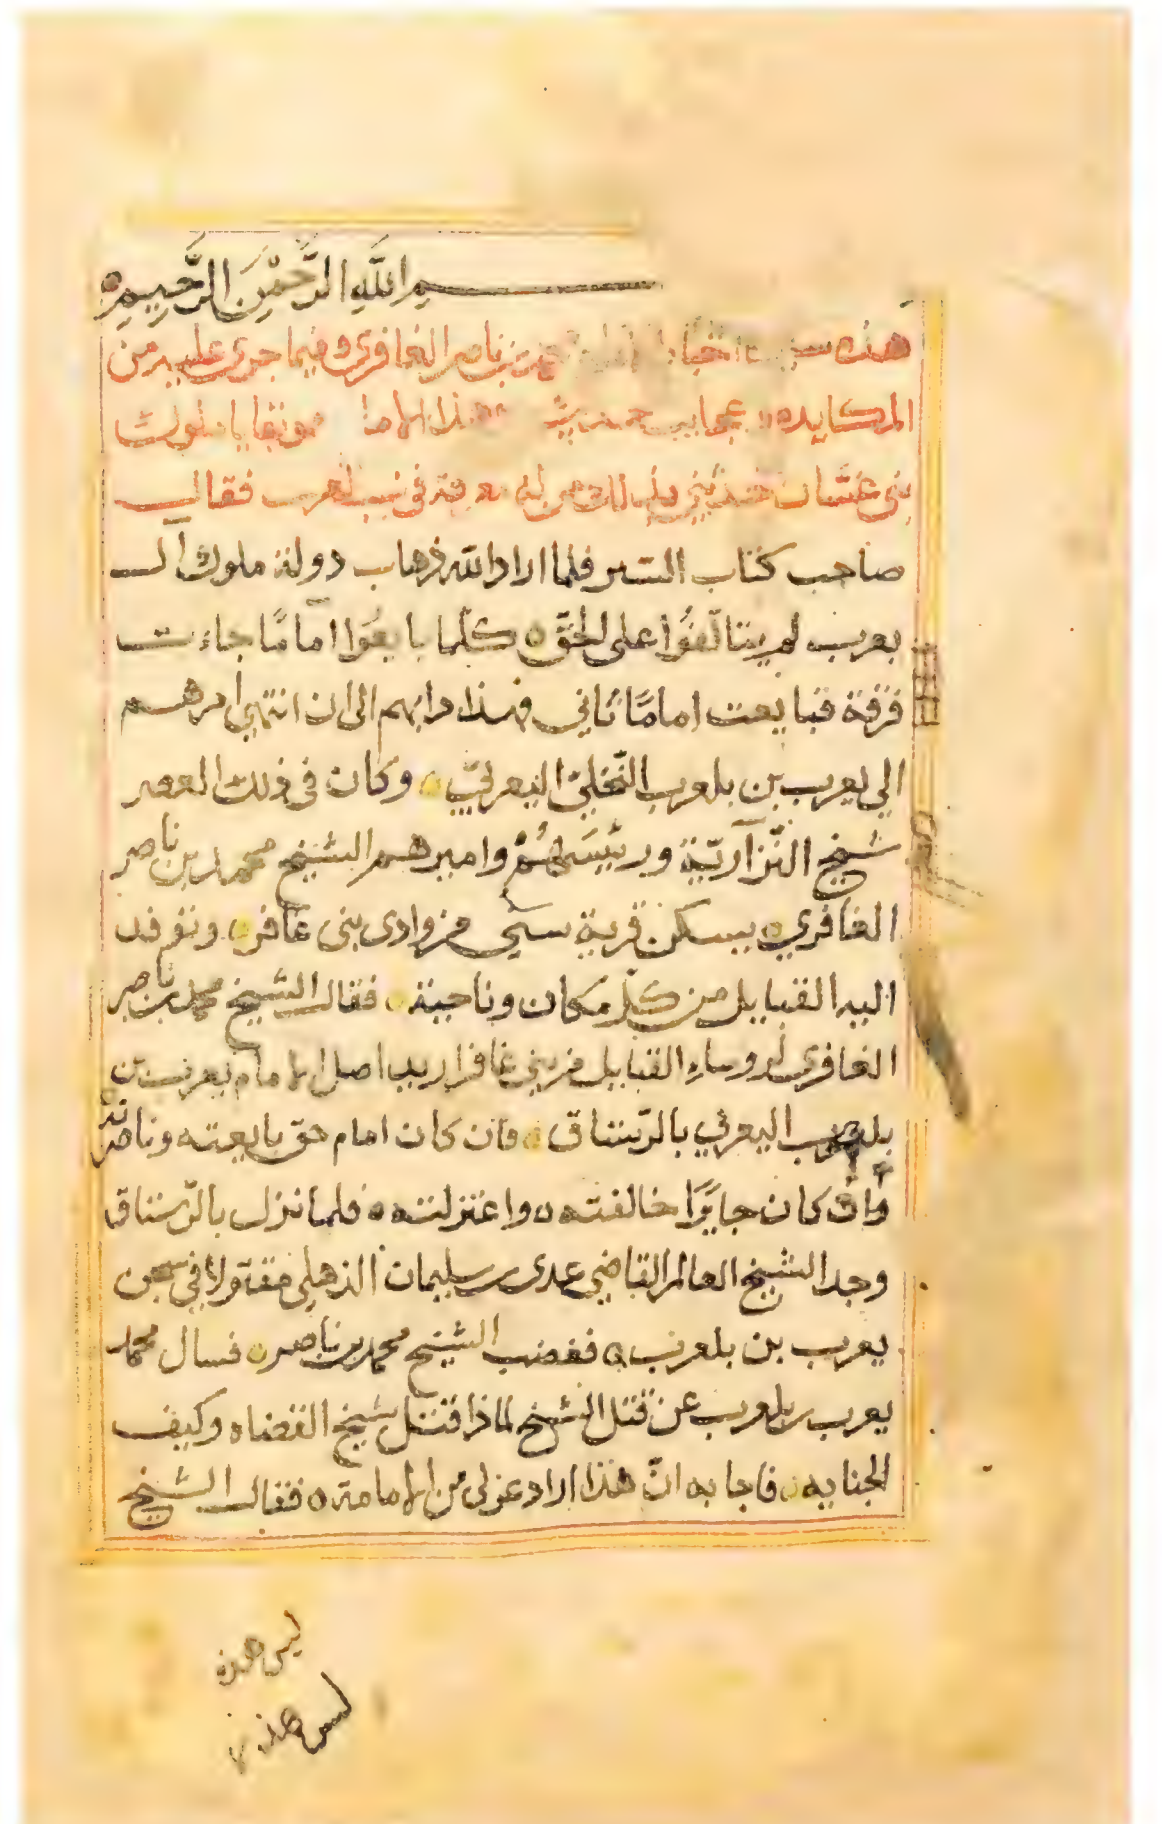 بسم اللَّهِ الرَّحْمٰنِ الرَّحِيمِ
هذه محمد بن ناصر الغافري وفيما جرى عليه من
المكايده عجايب هذا الامام بملوك
بني غسّان في نسب العرب فقال
صاحب كتاب السير فلما اراد الله ذهاب دولة ملوك آل
يعرب لم يتالّفُوا على الحقّ ه كلّما بايعُوا امامًا جاءت
فرقة فبايعت امامًا ثاني فهذا دابهم الى ان انتهى امرهم
الي يعرب بن بلعرب اليعربيّ ه وكان في ذلك العصر
شيخ النّزاريّة ورئيسَهُمْ واميرهم الشيخ محمد بن ناصر
الغافري ه يسكن قرية من وادى بني غافر ه وتوفد
اليه القبايل من كلّ مكان وناحية ه فقال الشيخ محمد بن ناصر
الغافري لروساء القبايل من بني غافر اريد اصل الامام يعرب بن
بلعرب اليعربي بالرّستاق ه فان كان امام حق بايعته وناصرته
وان كان جايرًا خالفته ه واعتزلته ه فلما نزل بالرّستاق
وجد الشيخ العالم القاضي عدي بن سليمان الذهلي مقتولا في سجن
يعرب بن بلعرب ه فغضب الشيخ محمد بن ناصر ه فسال محمد
يعرب بن بلعرب عن قتل الشيخ لماذا قتل شيخ القضاه وكيف
الجنايه ه فاجابه انّ هذا اراد عزلي من الامامة ه فقال الشيخ
ليس هذه
ليس هذه